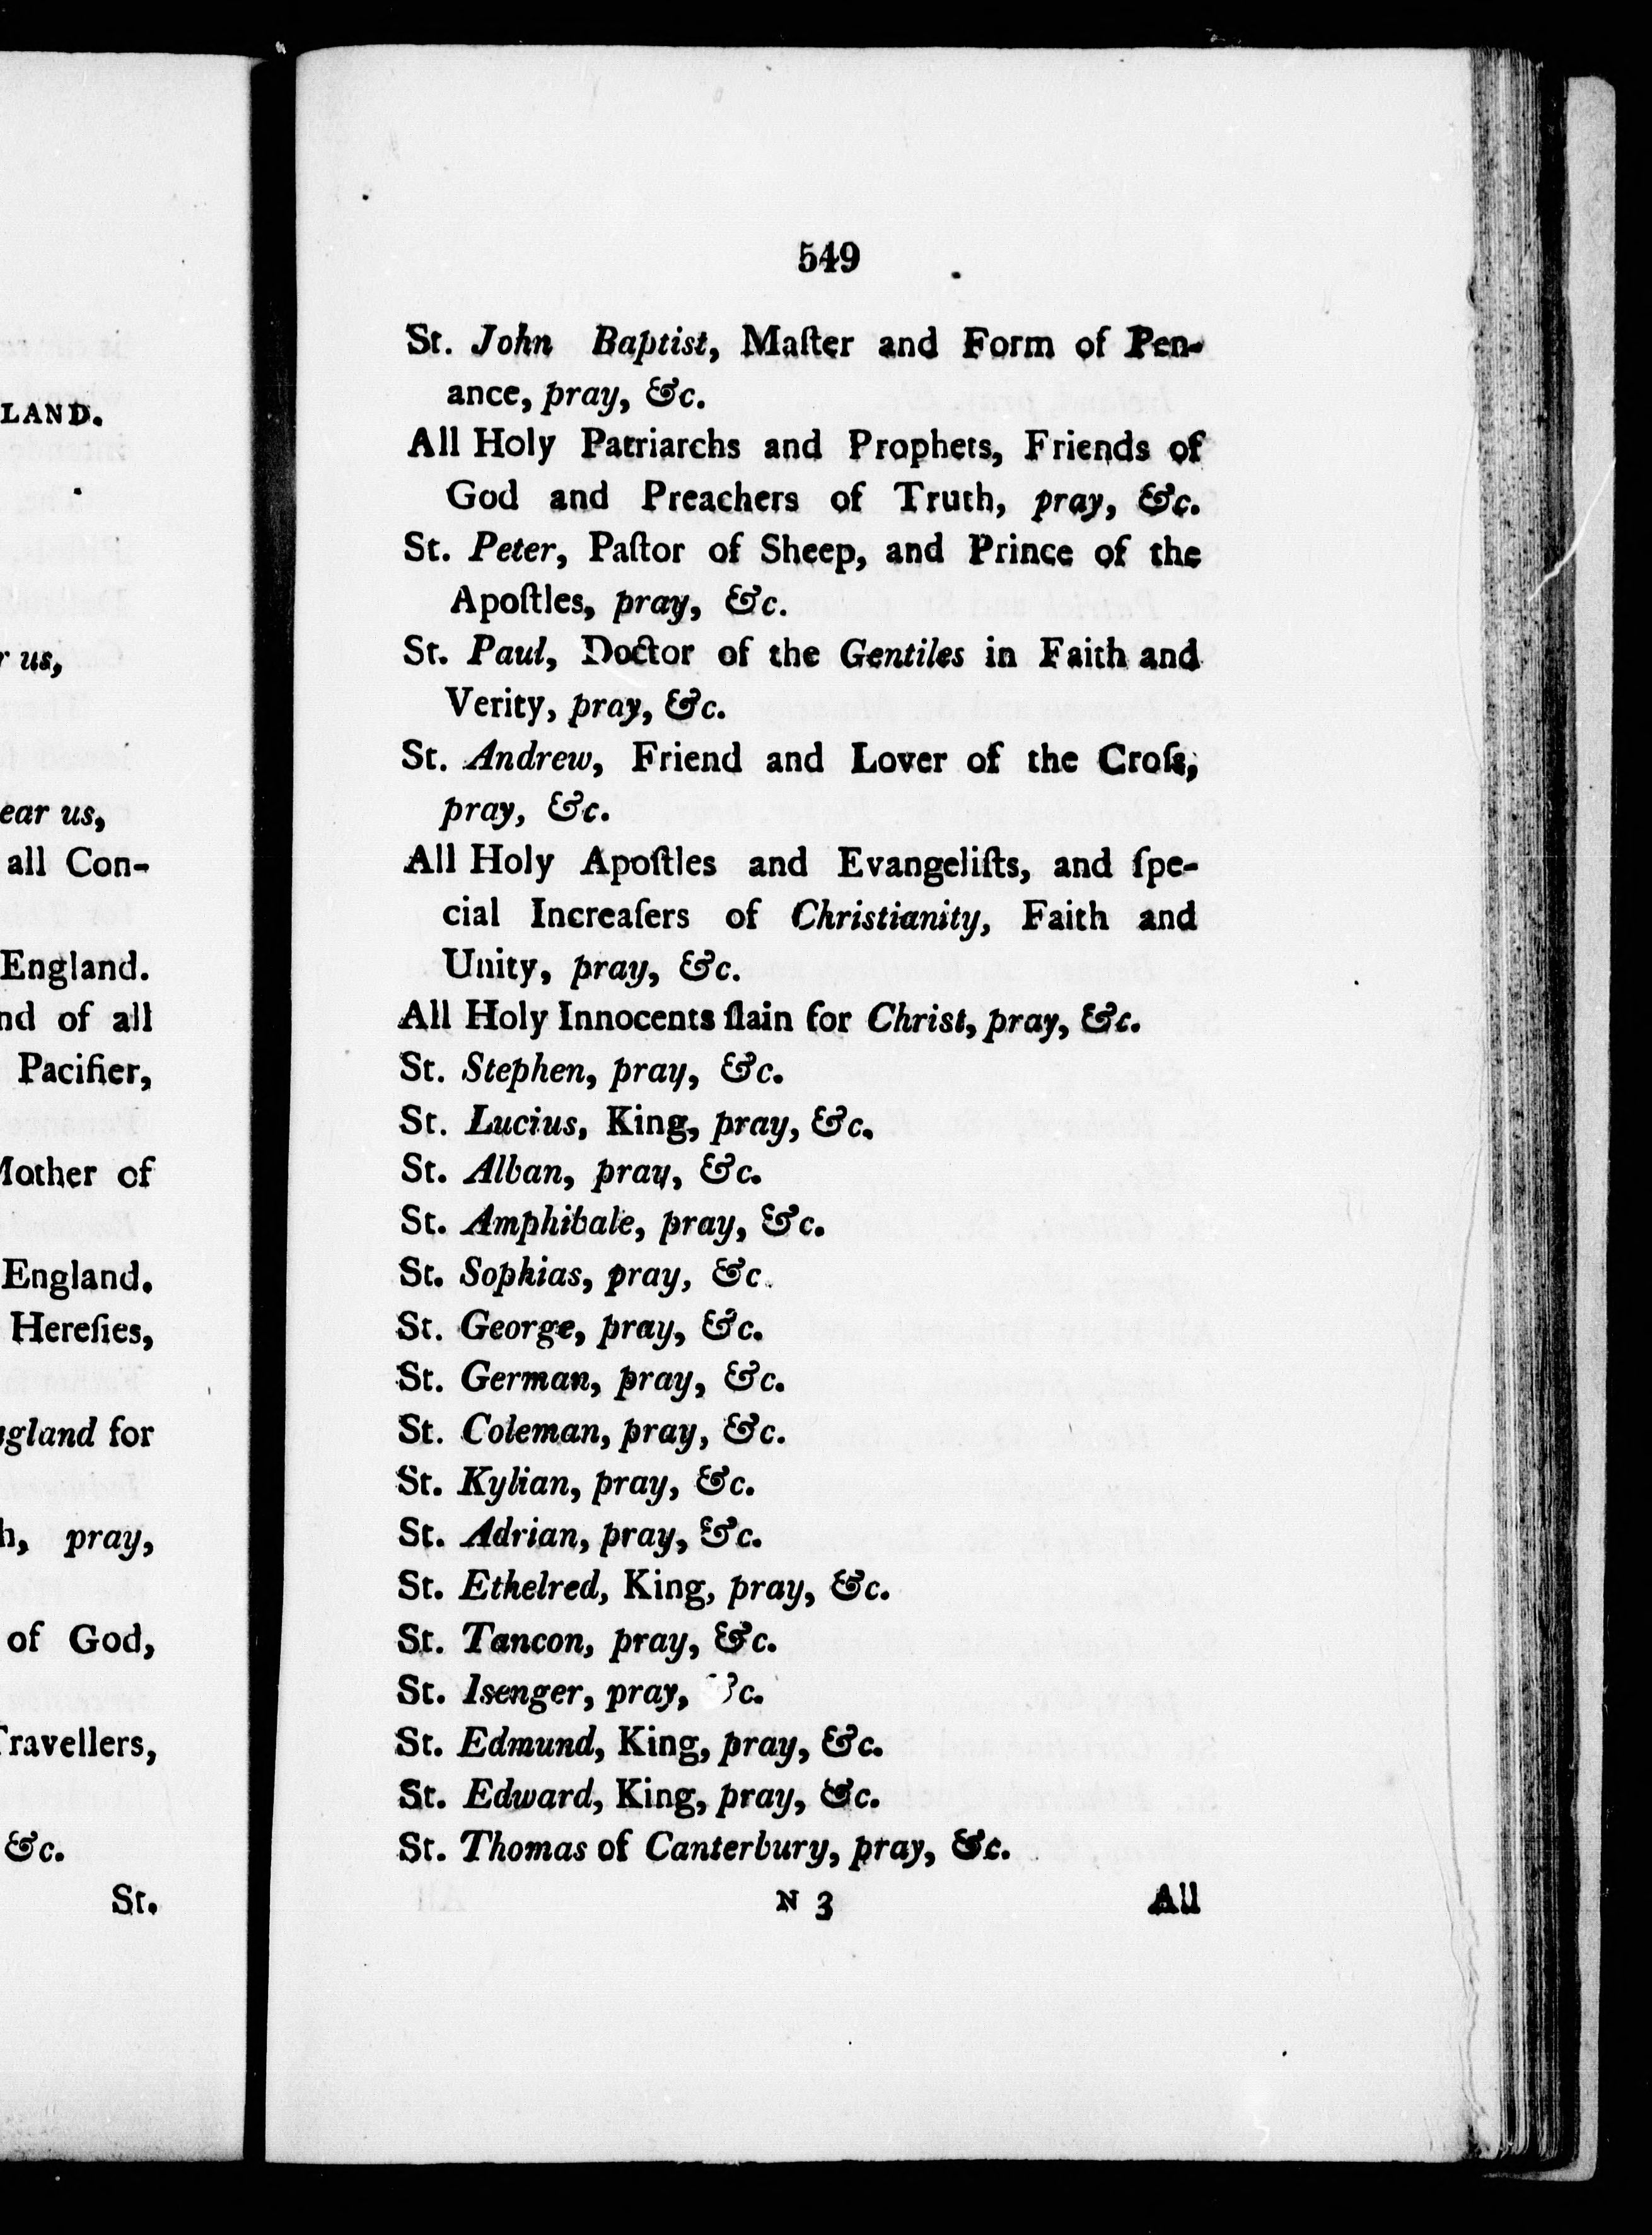 LAND.
us,
ear us,
all Con-
England.
of all
Pacifier,
of
England.
Hereſies,
for
pray,
of God,
&c.
St.
549
St. John Baptist, Maſter and Form of Pen-
ance, pray, &c.
All Holy Patriarchs and Prophets, Friends of
God and Preachers of Truth, pray, &c.
St. Peter, Paſtor of Sheep, and Prince of the
Apoſtles, pray, &c.
St. Paul, Doctor of the Gentiles in Faith and
Verity, pray, &c.
St. Andrew, Friend and Lover of the Croſs,
pray, &c.
All Holy Apoſtles and Evangeliſts, and ſpe-
cial Increaſers of Christianity, Faith and
Unity, pray, &c.
All Holy Innocents ſlain for Christ, pray, &c.
St. Stephen, pray, &c.
St. Lucius, King, pray, &c.
St. Alban, pray, &c.
St. Amphibale, pray, &c.
St. Sophias, pray, &c.
St. George, pray, &c.
St. German, pray, &c.
St. Coleman, pray, &c.
St. Kylian, pray, &c.
St. Adrian, pray, &c.
St. Ethelred, King, pray, &c.
St. Tancon, pray, &c.
St. Isenger, pray, &c.
St. Edmund, King, pray, &c.
St. Edward, King, pray, &c.
St. Thomas of Canterbury, pray, &c.
N 3 All